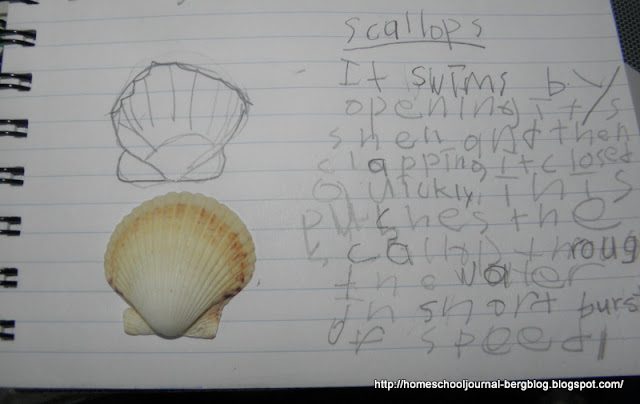 scallops
It swims by
opening it's
shell and then
clapping it closed
Quickly. This
puches the
scallop throug
the water
in short burs
of speed
http://homeschooljournal-bergblog.blogspot.com/